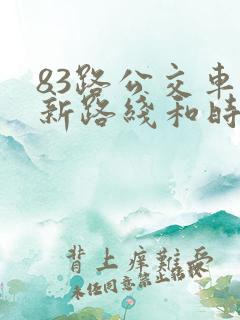 83路公交车
新路线和时
背上痒难受
未经同意禁止转载